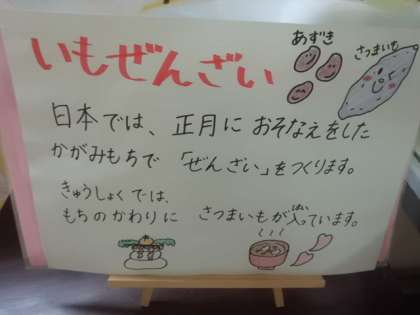 いもぜんざい
あずき
さつまいも
日本では、正月に おそなえをした
かがみもちで 「ぜんざい」をつくります。
きゅうしょくでは、
もちのかわりに さつまいもが入っています。
はい